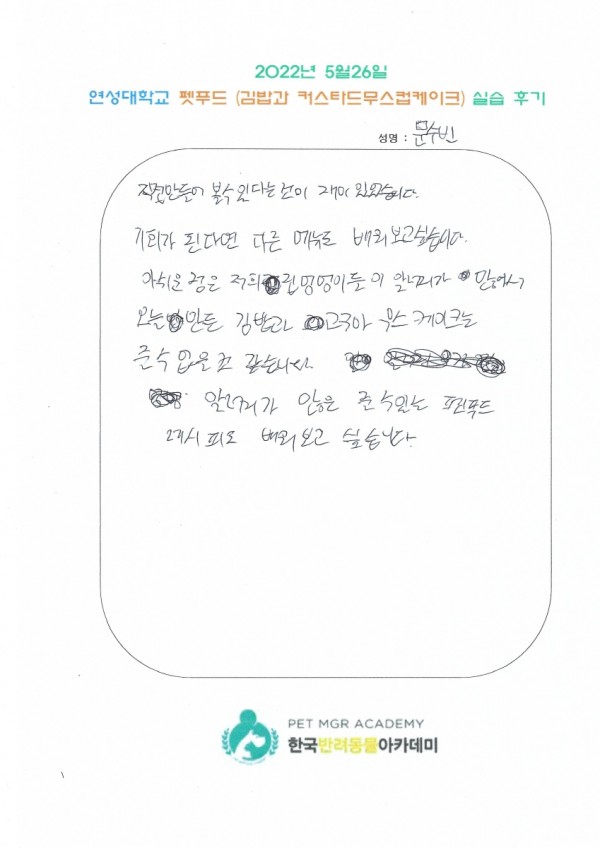 2022년 5월26일
연성대학교 펫푸드 (김밥과 커스타드무스컵케이크) 실습 후기
성명 : 문수빈
직접만들어 볼수 있다는것이 재미 있었습니다.
기회가 된다면 다른 메뉴도 배워보고싶습니다.
아쉬운 점은 저희 집멍멍이들이 알러지가 많아서
오늘 만든 김밥과 고구마 무스 케이크는
준수 없을것 같습니다.
알러지가 않은 줄수있는 펫푸드
레시피도 배워보고 싶습니다.
PET MGR ACADEMY
한국반려동물아카데미